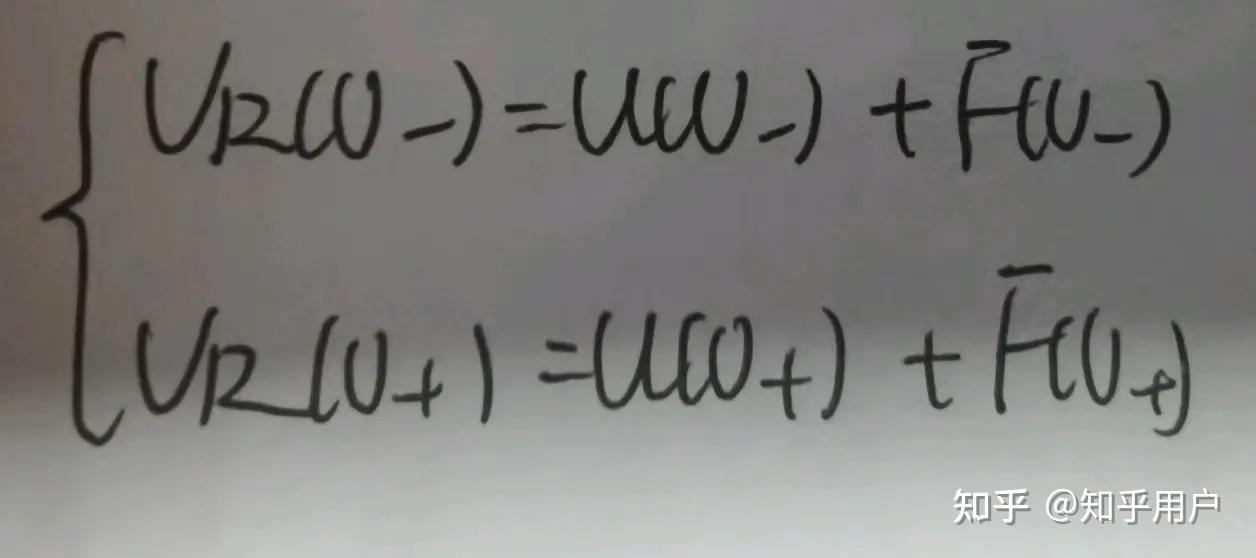 UR(0-)=U(0-)+F(0-)
UR(0+)=U(0+)+F(0+)
知乎 @知乎用户